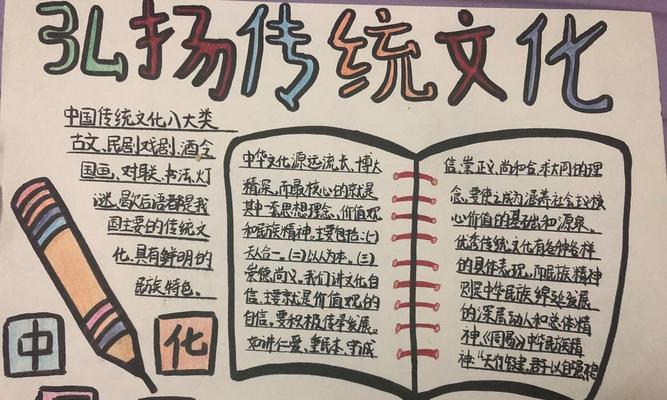 弘扬传统文化
中国传统文化八大类
古文、民剧、戏剧、酒令
国画、对联、书法、灯
谜、歇后语都是我
国主要的传统文
化,具有鲜明的
民族特色。
中华文化源远流长、博大
精深,而最核心的就是
其中一套思想理念、价值观
和民族精神。主要包括:(一)
天人合一。(二)以人为本。(三)
崇德尚义。我们讲文化自
信,主要就是价值观的
自信。要积极传承发展。
如讲仁爱、重民本、守诚
信、崇正义、尚和合、求大同的理
念。要使之成为涵养社会主义核
心价值的基础和源泉。
优秀传统文化有各种各样
的具体表现,而民族精神
则是中华民族绵延发展
的深层动人和总体精
神《周易》中华民族精
神“天行健,君子以自强不息
中
化